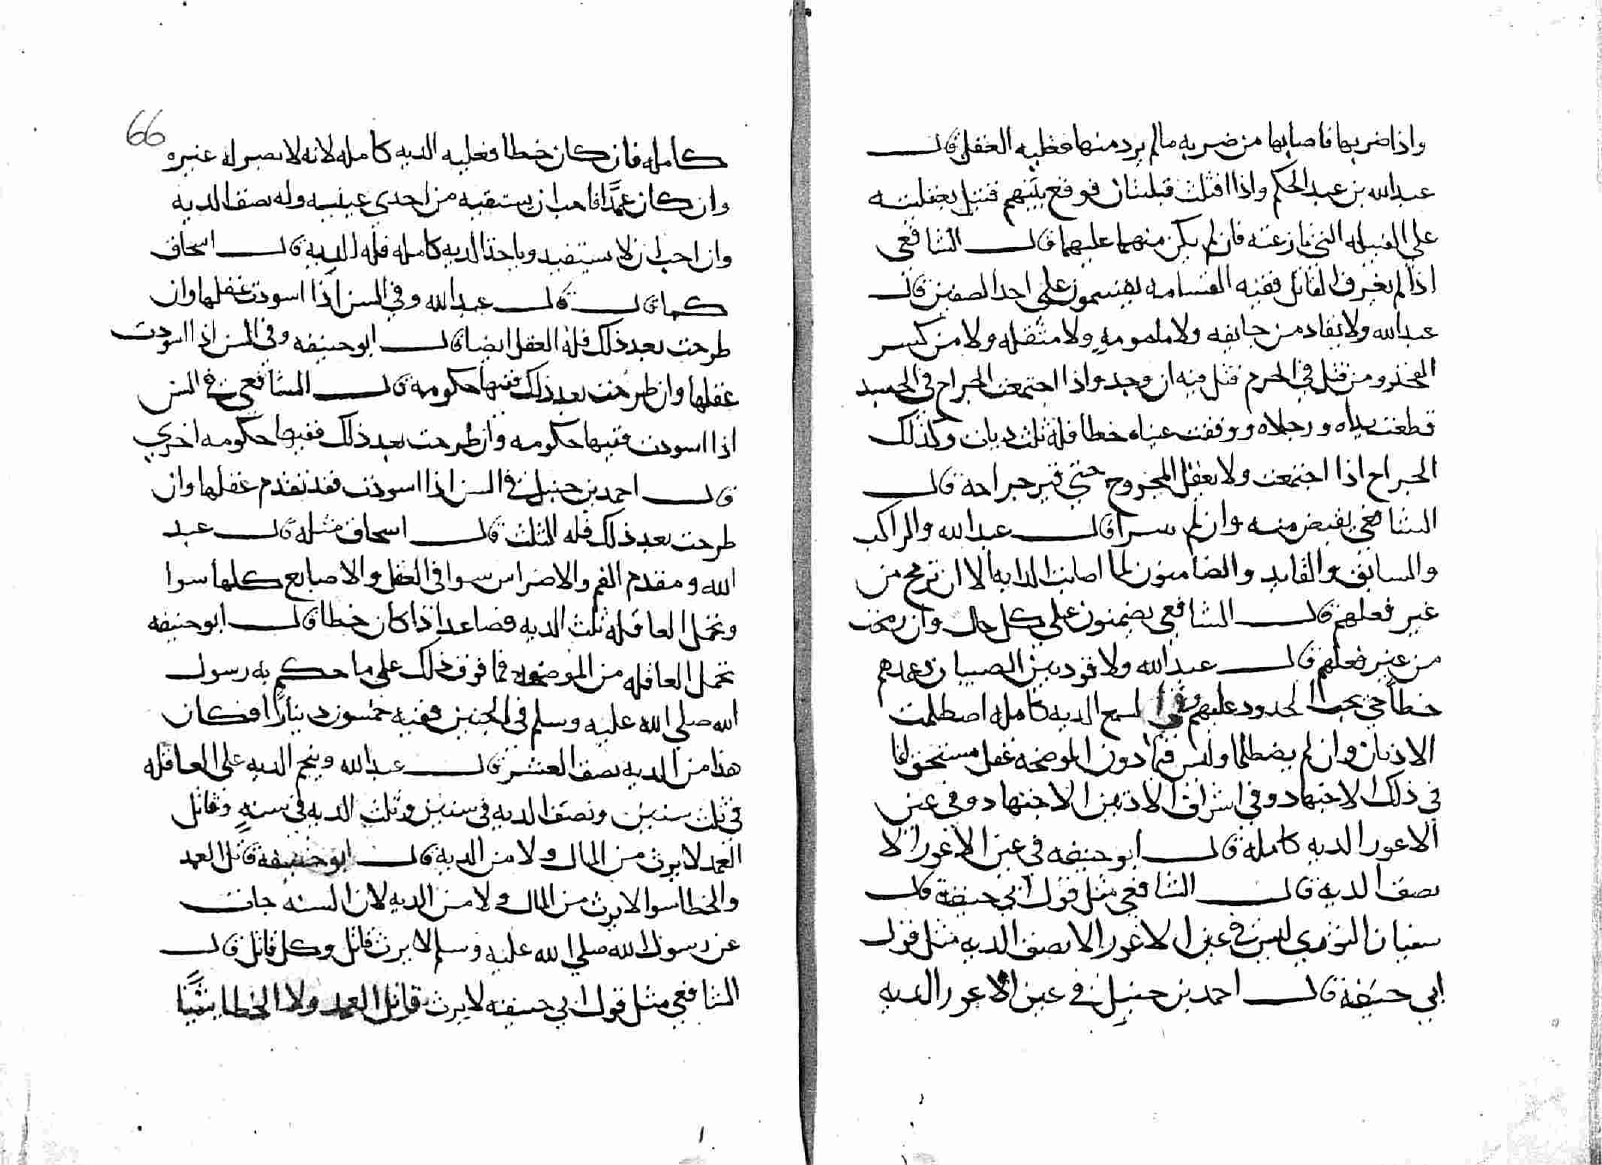 واذا ضربها فاصابها من ضربه ما لم يرد منها فعليه العقل قال
عبد الله بن عبد الحكم واذا اقتتلت قبيلتان فوقع بينهم قتيل فعقلته
على القبيلة التي نازعته فان لم يكن منهما فعليهما قال الشافعي
اذا لم يعرف القاتل ففيه القسامه يقسمون على احد الصفين قال
عبد الله ولا يقاد من جايفه ولا مامومه ولا منقله ولا من كسر
الفخذ ومن قتل في الحرم قتل فيه ان وجد واذا اجتمعت الجراح في الجسد
قطعت يداه ورجلاه ووفقت عيناه خطا فله ثلث ديات وكذلك
الجراح اذا اجتمعت ولا يعقل المجروح حتى تبر جراحه قال
الشافعي يقبض منه وان لم يبرا قال عبد الله والراكب
والسابق والقايد والضامنون لما اصابت الدابه الا ان ترمح من
غير فعلهم قال الشافعي يضمنون على كل حال وان رمحت
من غير فعلهم قال عبد الله ولا قود بين الصبيان وعمدهم
خطا حتى تجب الحدود عليهم وفي السمع الديه كامله اصطلمت
الاذنان وان لم يصطلما وليس فيما دون الموضحه عقل مستحق انما
في ذلك الاجتهاد وفي اشراف الاذنين الاجتهاد وفي عين
الاعور الديه كامله قال ابو حنيفه في عين الاعور الا
نصف الديه قال الشافعي مثل قول ابي حنيفة قال
سفيان الثوري ليس في عين الاعور الا نصف الديه مثل قول
ابي حنيفة قال احمد بن حنبل في عين الاعور الديه
66
كامله فان كان خطا فعليه الديه كامله لانه لا بصر له غيره
وان كان عمدا فاحب ان يستقيد من احدى عينيه وله نصف الديه
وان احب ان لا يستقيد وياخذ الديه كامله فله الديه قال اسحاق
كما قال قال عبد الله وفي السن اذا اسودت عقلها وان
طرحت بعد ذلك فله العقل ايضا قال ابو حنيفه وفي السن اذا اسودت
عقلها وان طرحت بعد ذلك ففيها حكومه قال الشافعي في السن
اذا اسودت ففيها حكومه وان طرحت بعد ذلك ففيها حكومه اخرى
قال احمد بن حنبل في السن اذا اسودت فقد تقدم عقلها وان
طرحت بعد ذلك فله الثلث قال اسحاق مثله قال عبد
الله ومقدم الفم والاضراس سوا في العقل والاصابع كلها سوا
وتحمل العاقله ثلث الديه فصاعدا اذا كان خطا قال ابو حنيفه
تحمل العاقله من الموضحه فما فوق ذلك على ما حكم به رسول
الله صلى الله عليه وسلم في الجنين ففيه خمسون دينارا فكان
هذا من الديه نصف العشر قال عبد الله وتنجم الديه على العاقله
في ثلث سنين ونصف الديه في سنتين وثلث الديه في سنه وقاتل
العمد لا يرث من المال ولا من الديه قال ابو حنيفة قاتل العمد
والخطا سوا لا يرث من المال ولا من الديه لان السنه جات
عن رسول الله صلى الله عليه وسلم الا يرث قاتل وكل قاتل قال
الشافعي مثل قول ابي حنيفه لا يرث قاتل العمد ولا الخطا شيئا